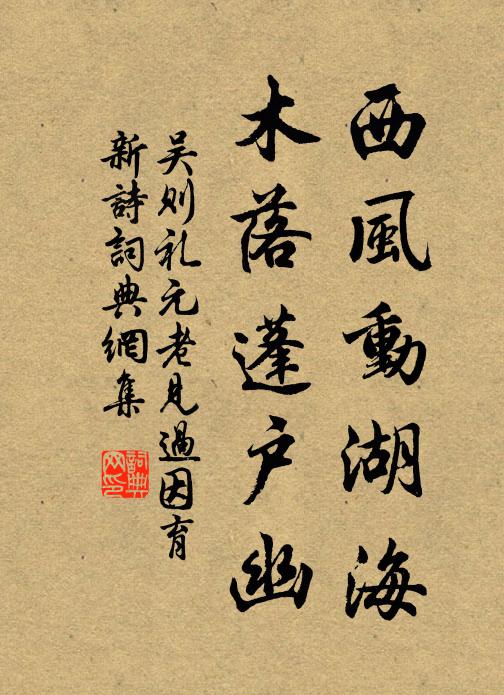 西風動湖海
木落蓬户幽
吴则礼元老見過因育
新詩詞典網集
詞典网印